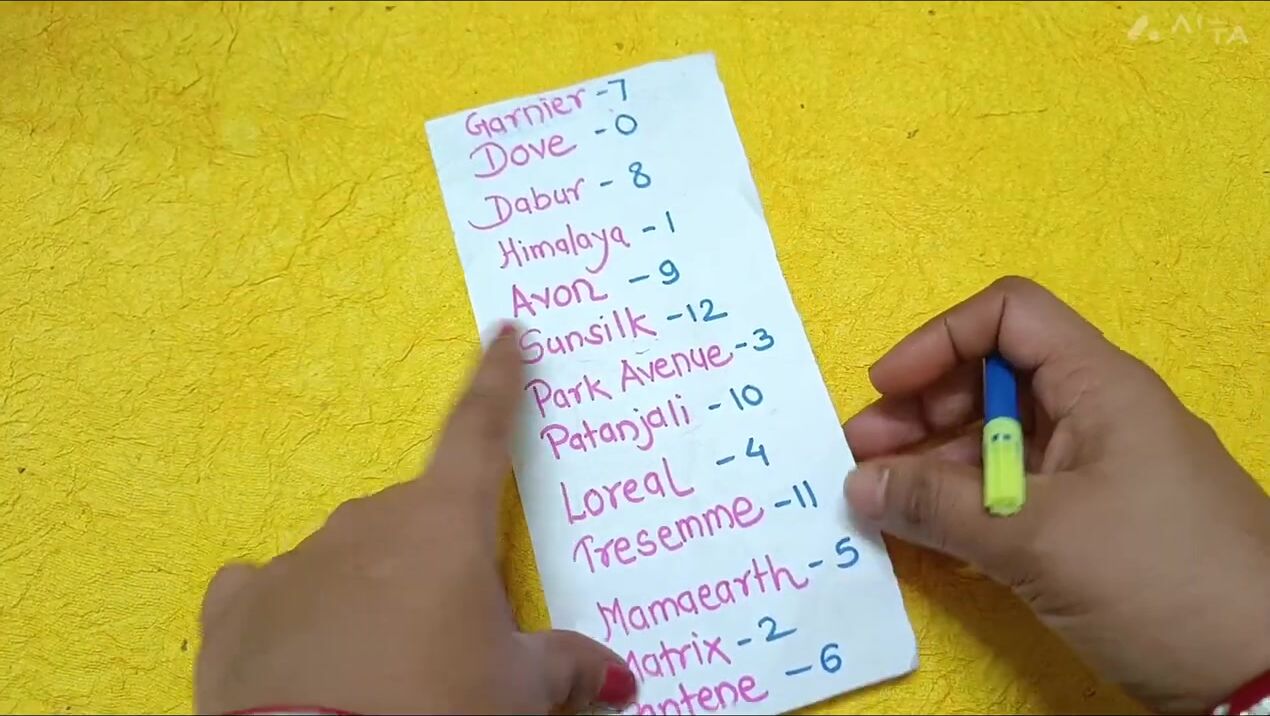 Garnier - 7
Dove - 0
Dabur - 8
Himalaya - 1
Avon - 9
Sunsilk - 12
Park Avenue - 3
Patanjali - 10
Loreal - 4
Tresemme - 11
Mamaearth - 5
Matrix - 2
Pantene - 6